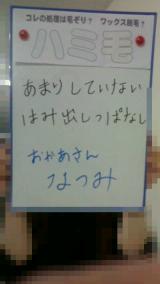 コレの処理は毛ぞり? ワックス脱毛?
ハミ毛
あまりしていない
はみ出しっぱなし
おかあさん
なつみ